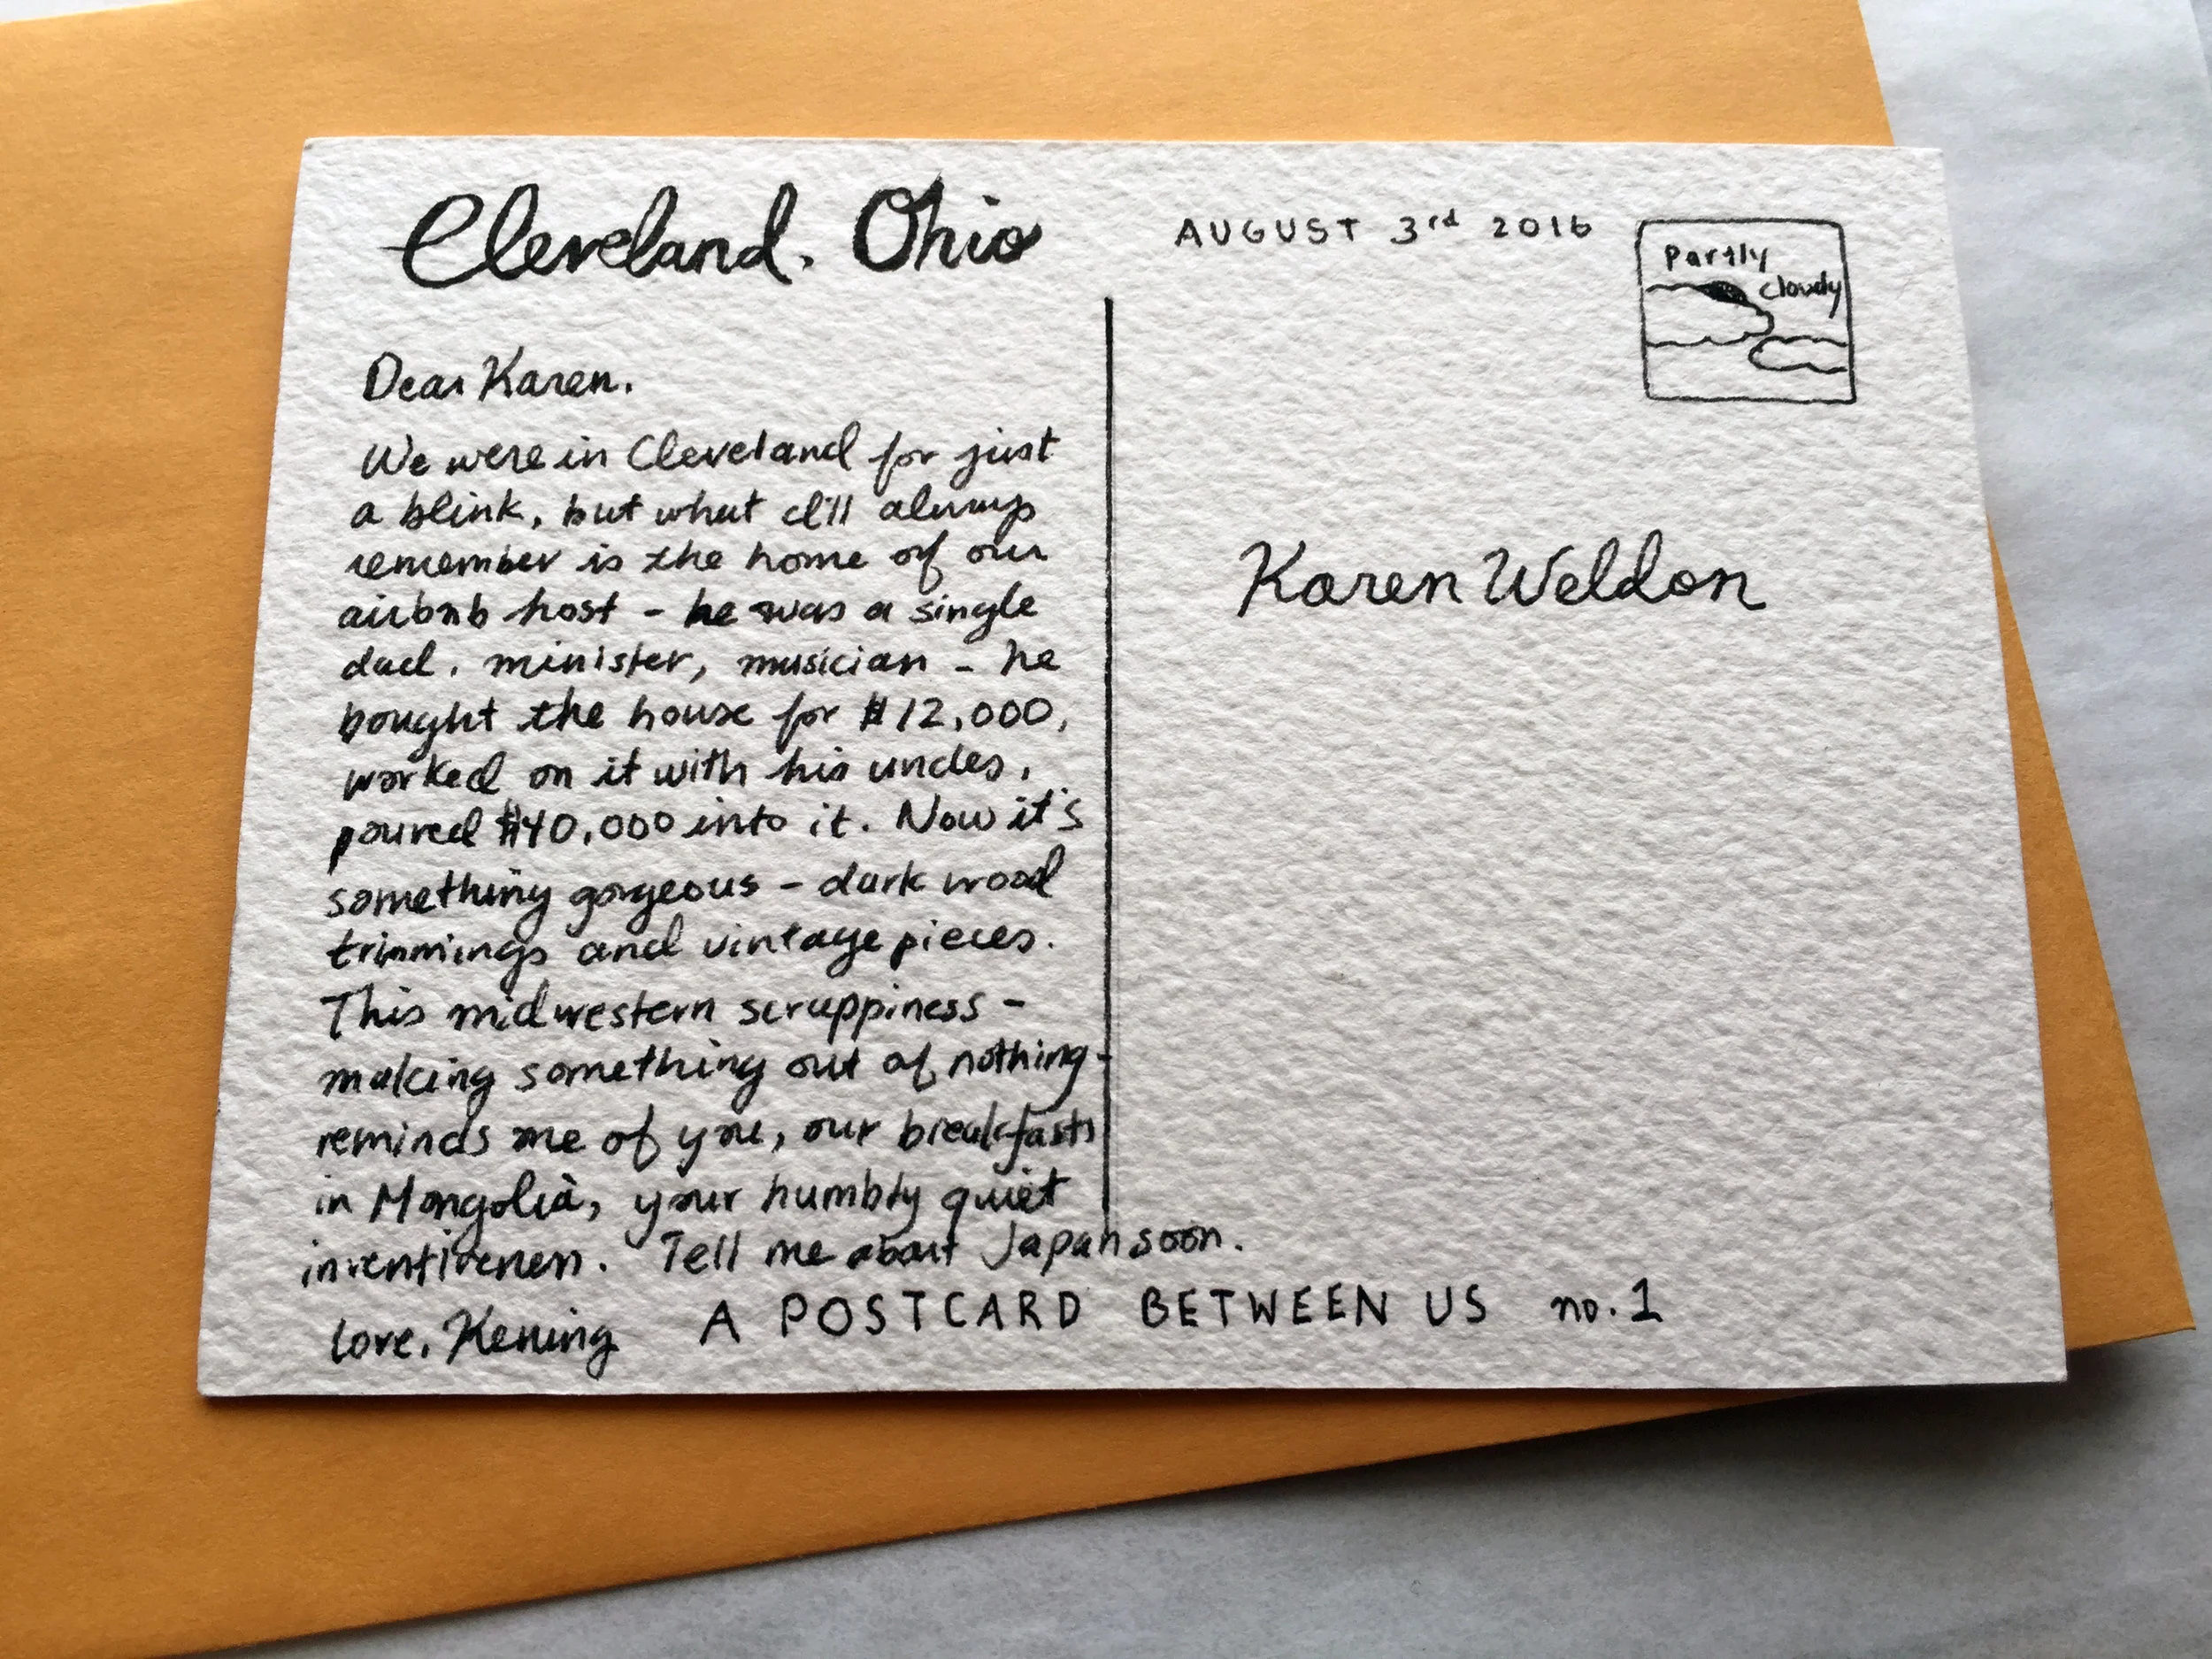 Cleveland, Ohio
AUGUST 3rd 2016
Partly
cloudy
Dear Karen,
We were in Cleveland for just
a blink, but what I'll always
remember is the home of our
airbnb host - he was a single
dad, minister, musician - he
bought the house for $12,000,
worked on it with his uncles,
poured $40,000 into it. Now it's
something gorgeous - dark wood
trimmings and vintage pieces.
This midwestern scrappiness -
making something out of nothing -
reminds me of you, our breakfasts
in Mongolia, your humbly quiet
inventiveness. Tell me about Japan soon.
love, Kening
Karen Weldon
A POSTCARD BETWEEN US no. 1